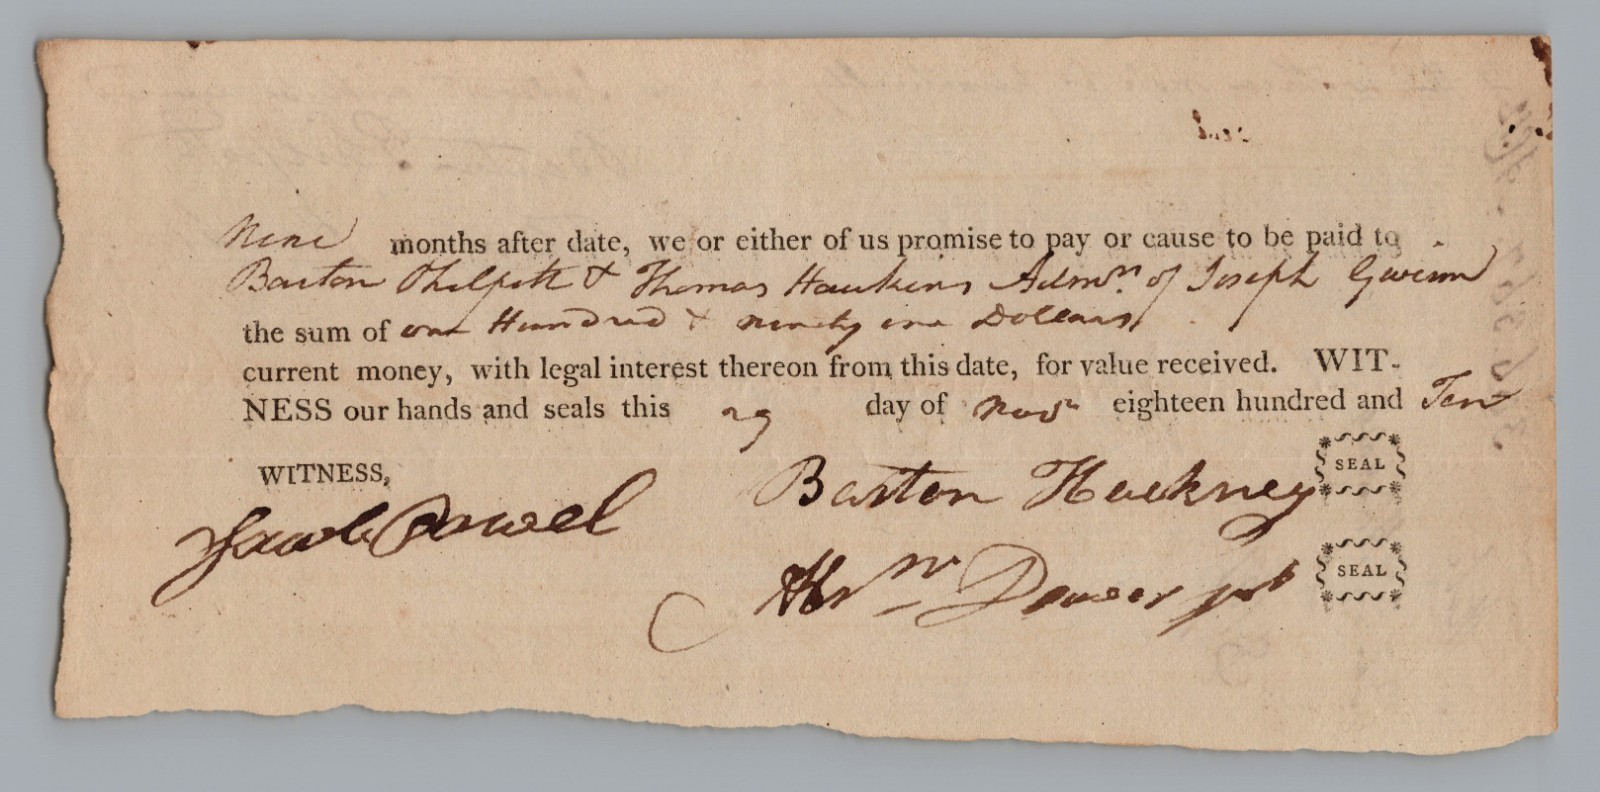 Nine months after date, we or either of us promise to pay or cause to be paid to
Barton Philpott & Thomas Hawkins Admrs. of Joseph Gwinn
the sum of one Hundred & ninety one Dollars
current money, with legal interest thereon from this date, for value received. WIT-
NESS our hands and seals this 29 day of Novr eighteen hundred and Ten
WITNESS,
Barton Hackney SEAL
Jacob Powel
SEAL